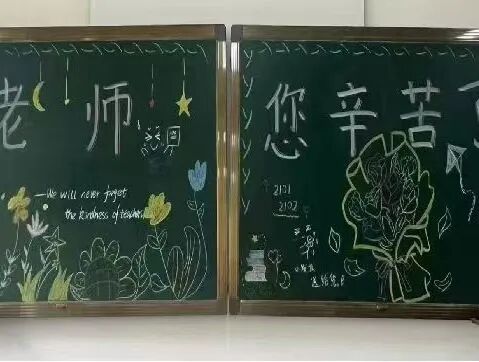 老师
We will never forget
the kindness of teachers
您辛苦了
2101
2102